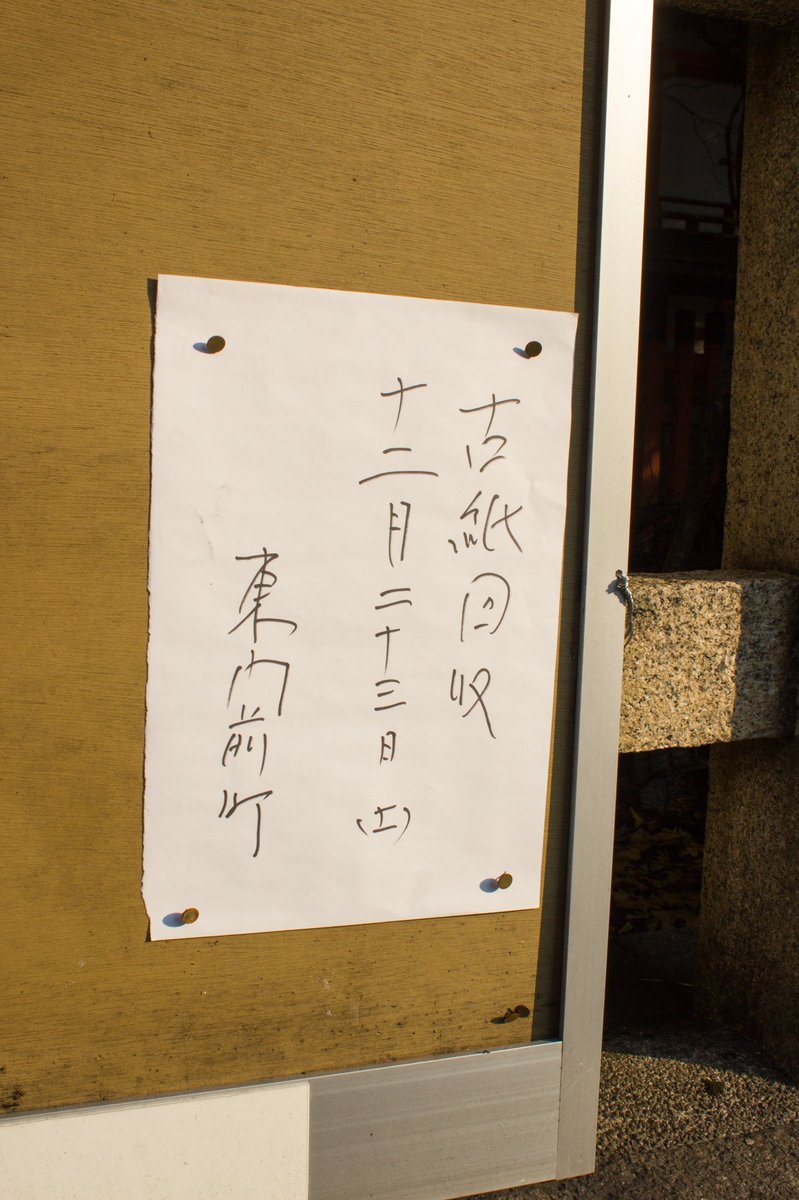 古紙回収
十二月二十三日(土)
東内前町